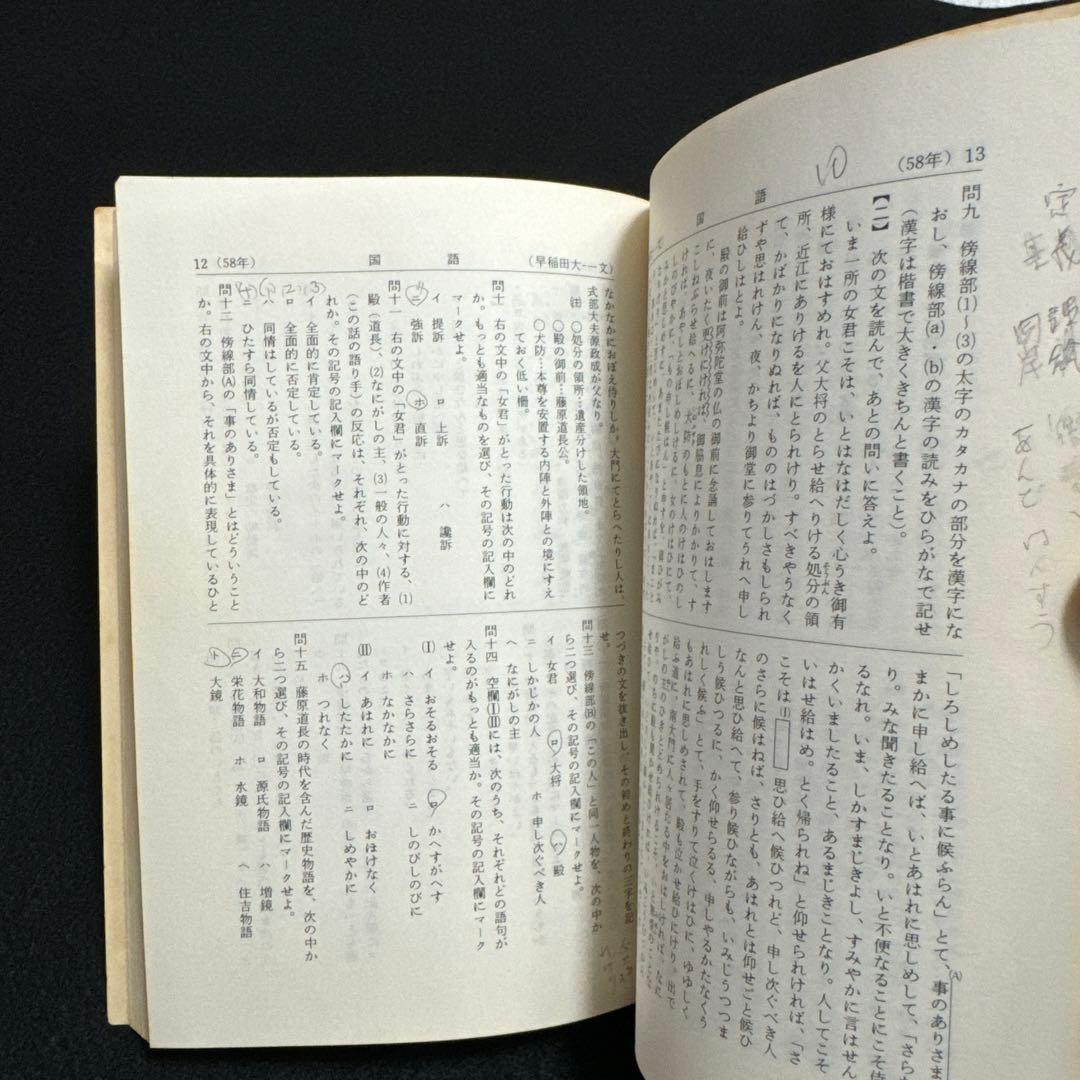 (58年) 13
国語
問九 傍線部(1)〜(3)の太字のカタカナの部分を漢字にな
おし、傍線部(a)・(b)の漢字の読みをひらがなで記せ
(漢字は楷書で大きくきちんと書くこと)。
【二】 次の文を読んで、あとの問いに答えよ。
いま一所の女君こそは、いとはなはだしく心うき御有
様にておはすめれ。父大将のとらせ給へりける処分の領
そうぶん
所、近江にありけるを人にとられけり。すべきやうなく
て、かばかりになりぬれば、もののはづかしさもしられ
ずや思はれけん、夜、かちより御堂に参りてうれへ申し
給ひしはとよ。
殿の御前は阿弥陀堂の仏の御前に念誦しておはします
に、夜いたく更けにければ、御脇息によりかかりて、す
こしねぶらせ給へるに、犬防のもとに人のけはひのし
ければ、あやしとおぼしめしけるに、女のけはひにて、
「しろしめしたる事に候ふらん」とて、事のありさま
(A)
まかに申し給へば、いとあはれに思しめして、「さら
り。みな聞きたることなり。いと不便なることにこそ侍
るなれ。いま、しかすまじきよし、すみやかに言はせん
かくいましたること、あるまじきことなり。人してこそ
いはせ給はめ。とく帰られね」と仰せられければ、「さ
こそは(I) 思ひ給へ候ひつれど、申し次ぐべき人
のさらに候はねば、さりとも、あはれとは仰せごと候ひ
なんと思ひ給へて、参り候ひながらも、いみじうつつま
しう候ひつるに、かく仰せらるる、申しやるかたなくう
れしく候ふ」とて、手をすりて泣くけはひに、ゆゆしく
もあはれに思しめされて、殿も泣かせ給ひにけり。出で
給ふ道に、南大門に人々居たる中をおはしければ、なに
12 (58年)
国語
(早稲田大-一文)
なかなかにおぼえ侍りしか。大門にてとらへたりし人は、
式部大夫源政成が父なり。
注 ○処分の領所…遺産分けした領地。
○殿の御前…藤原道長公。
○犬防…本尊を安置する内陣と外陣との境にすえ
ておく低い柵。
問十 右の文中の「女君」がとった行動は次の中のどれ
か。もっとも適当なものを選び、その記号の記入欄に
マークせよ。
イ 提訴 ロ 上訴 ハ 讒訴
ニ 強訴 ホ 直訴
問十一 右の文中の「女君」がとった行動に対する、(1)
殿(道長)、(2)なにがしの主、(3)一般の人々、(4)作者
(この話の語り手)の反応は、それぞれ、次の中のど
れか。その記号の記入欄にマークせよ。
イ 全面的に肯定している。
ロ 全面的に否定している。
ハ 同情はしているが否定もしている。
ニ ひたすら同情している。
(4) (1) (2) (3)
問十二 傍線部(A)の「事のありさま」とはどういうこと
か。右の文中から、それを具体的に表現しているひと
つづきの文を抜き出し、その初めと終わりの三字を記
せ。
問十三 傍線部(B)の「この人」と同一人物を、次の中か
ら二つ選び、その記号の記入欄にマークせよ。
イ 女君 ロ 大将 ハ 殿
ニ しかじかの人 ホ 申し次ぐべき人
ヘ なにがしの主
問十四 空欄(I)(III)には、次のうち、それぞれどの語句が
入るのがもっとも適当か。その記号の記入欄にマーク
せよ。
(I) イ おそるおそる ロ かへすがへす
ハ さらさらに ニ しのびしのびに
ホ なかなかに
(III) イ あはれに ロ おほけなく
ハ したたかに ニ しめやかに
ホ つれなく
問十五 藤原道長の時代を含んだ歴史物語を、次の中か
ら二つ選び、その記号の記入欄にマークせよ。
イ 大和物語 ロ 源氏物語 ハ 増鏡
ニ 栄花物語 ホ 水鏡 ヘ 住吉物語
ト 大鏡